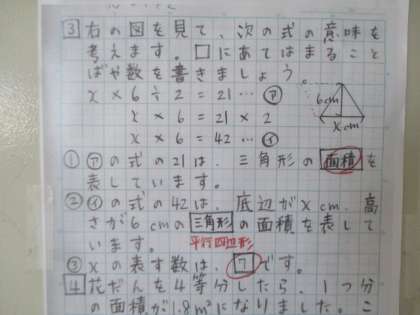 3 右の図を見て、次の式の意味を
考えます。□にあてはまること
ばや数を書きましょう。
x × 6 ÷ 2 = 21 … ㋐
6cm
x × 6 = 21 × 2
xcm
x × 6 = 42 … ㋑
① ㋐の式の21は、三角形の面積を
表しています。
② ㋑の式の42は、底辺がxcm、高
さが6cmの三角形の面積を表して
います。
平行四辺形
③ xの表す数は、7です。
4 花だんを4等分したら、1つ分
の面積が1.8m²になりました。こ